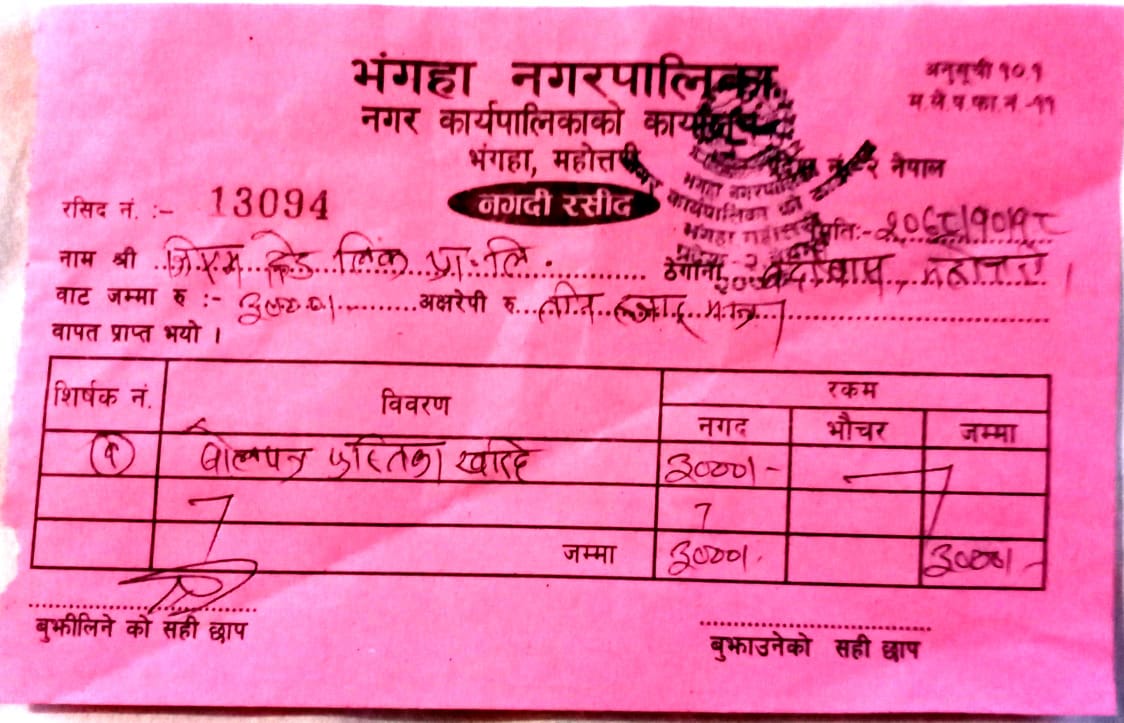 भंगहा नगरपालिका
अनुसूची १०.१
नगर कार्यपालिकाको कार्यालय
म.ले.प.फा.नं -११
भंगहा, महोत्तरी
प्रदेश नं -२ नेपाल
भंगहा नगरपालिका
नगर कार्यपालिका को
नगदी रसीद
रसिद नं. :- 13094
मिति:- २०७८।१०।१८
नाम श्री ट्रेड लिंक प्रा. लि. ठेगाना बर्दीबास, महोत्तरी ।
वाट जम्मा रु :- ३०००।- अक्षरेपी रु तीन हजार मात्र
वापत प्राप्त भयो ।
शिर्षक नं. विवरण रकम
नगद भौचर जम्मा
१ बोलपत्र पुस्तिका खरिद ३०००।-
जम्मा ३०००।- ३०००।-
बुझीलिने को सही छाप
बुझाउनेको सही छाप